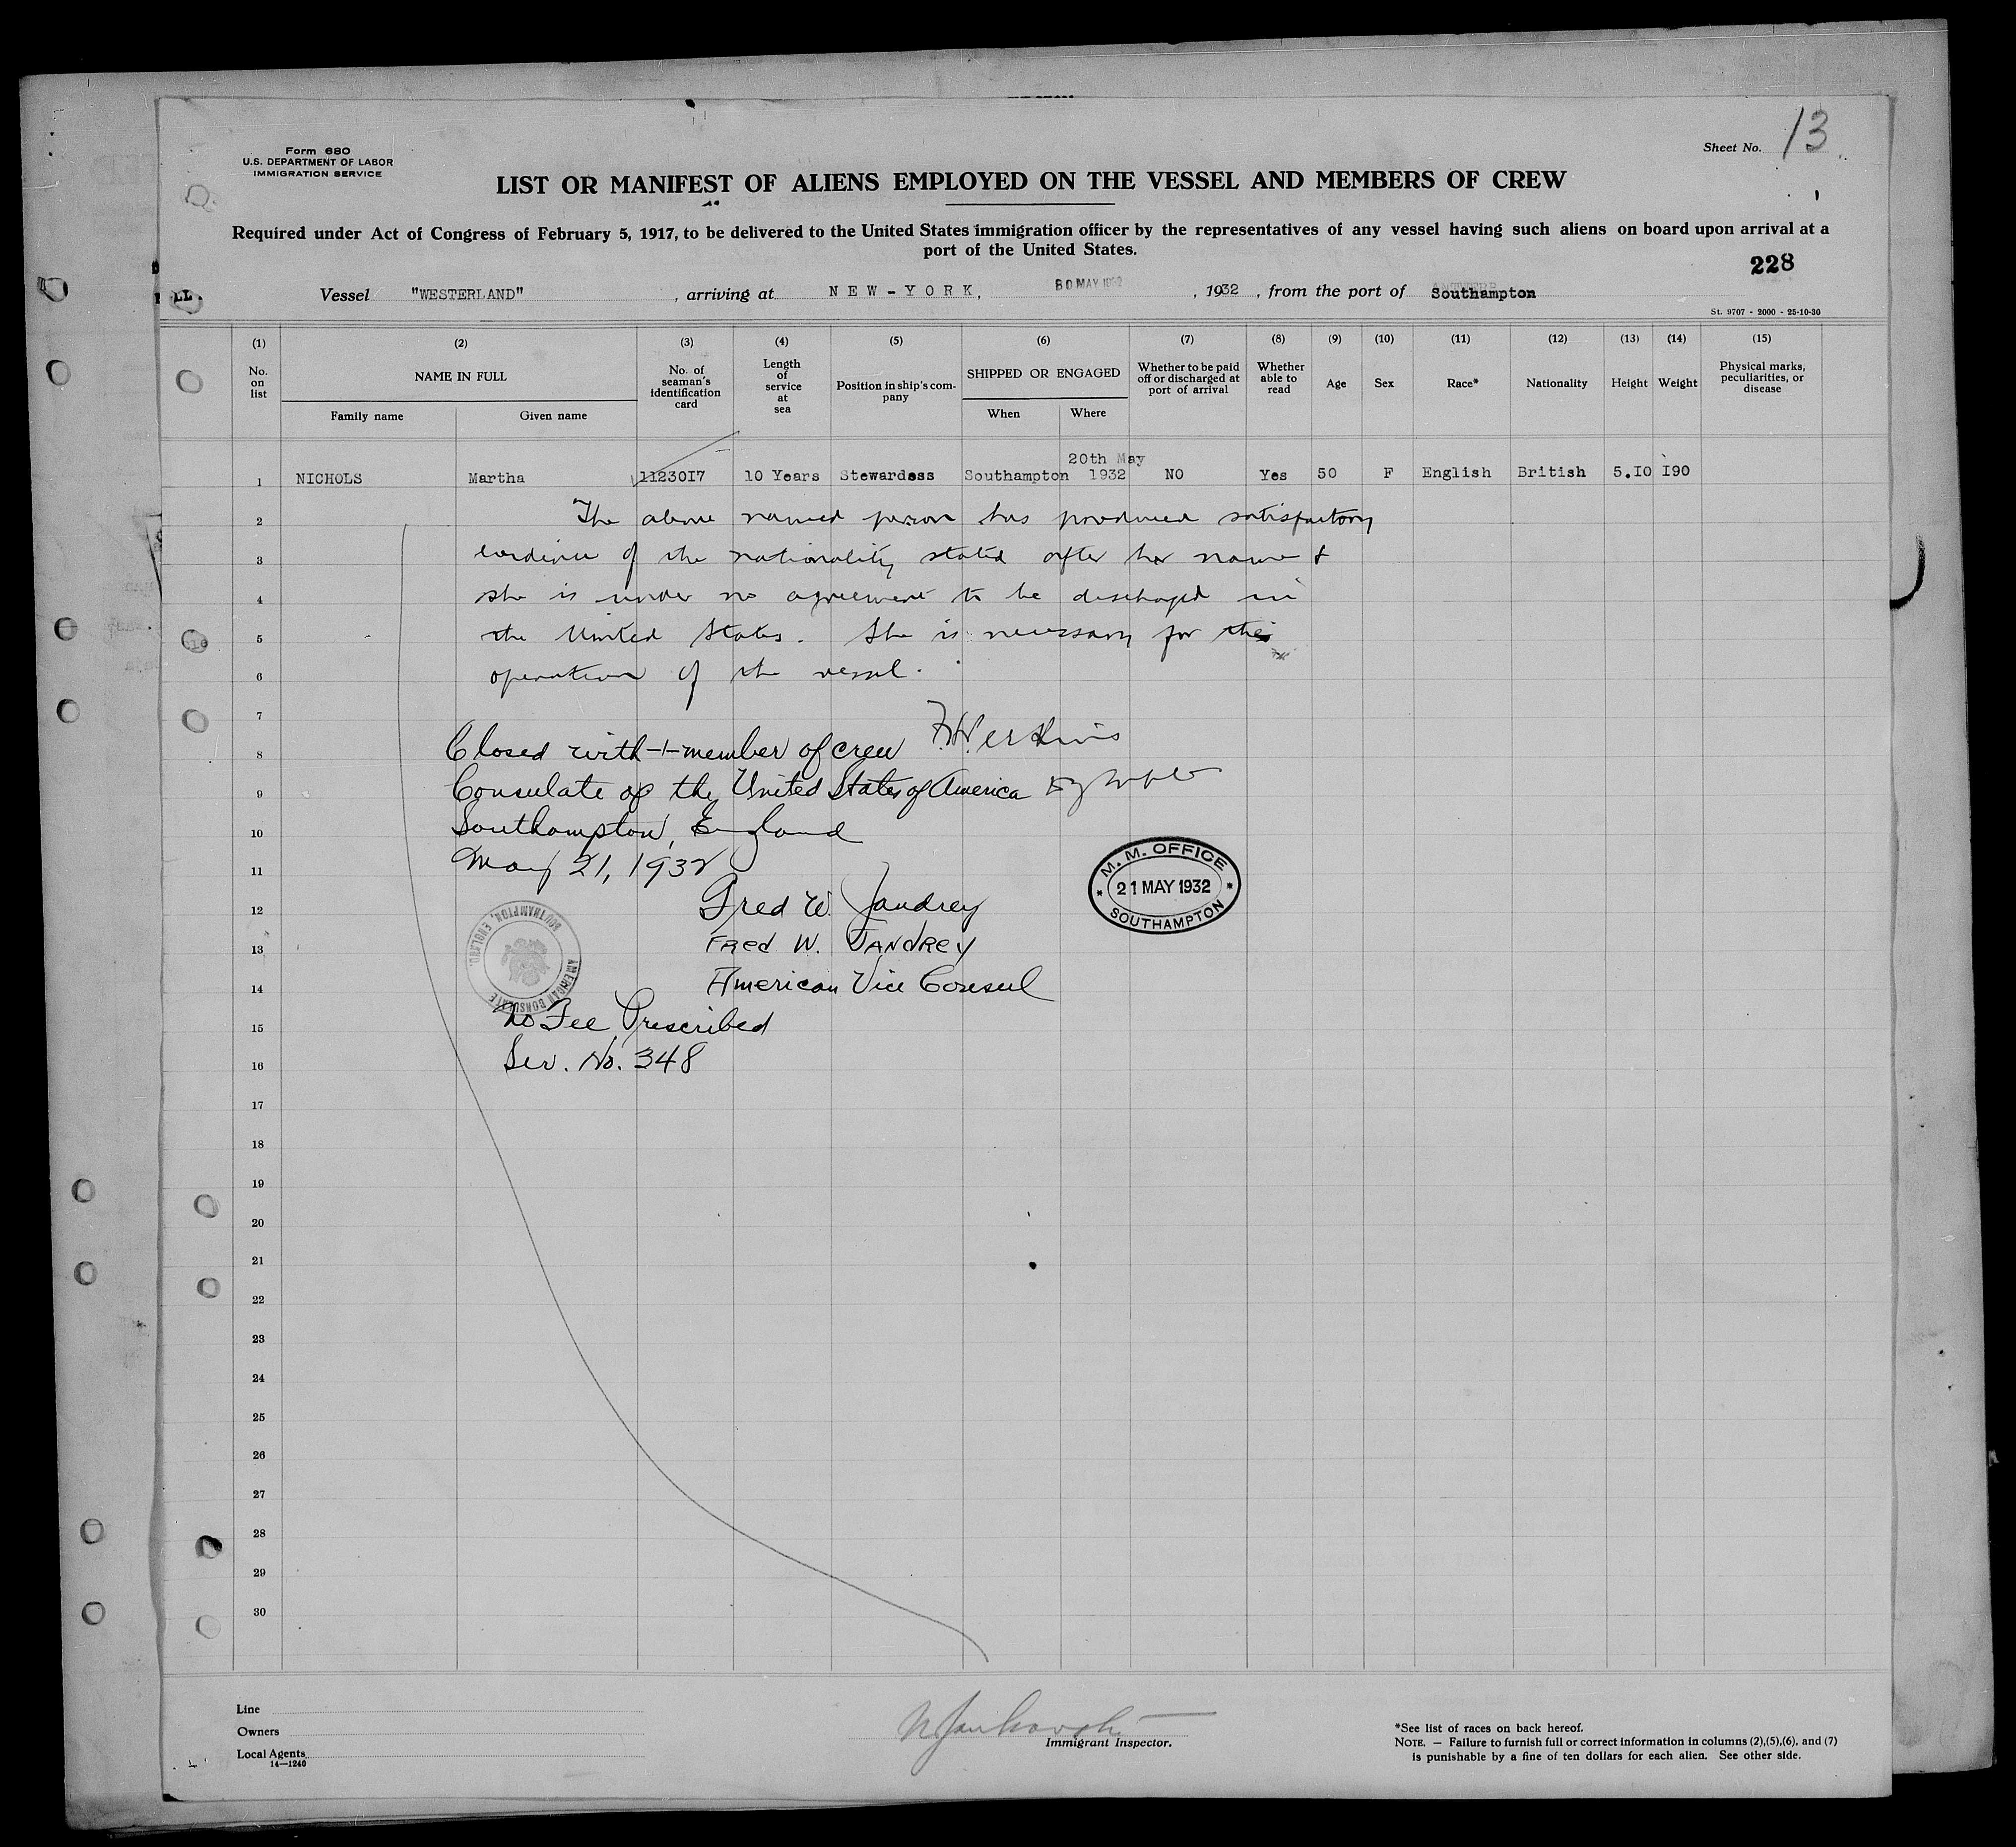 Form 680
U.S. DEPARTMENT OF LABOR
IMMIGRATION SERVICE
Sheet No. 13
LIST OR MANIFEST OF ALIENS EMPLOYED ON THE VESSEL AND MEMBERS OF CREW
Required under Act of Congress of February 5, 1917, to be delivered to the United States immigration officer by the representatives of any vessel having such aliens on board upon arrival at a
port of the United States.
228
Vessel "WESTERLAND", arriving at NEW-YORK, 30 MAY 1932, 1932, from the port of Southampton
St. 9707 - 2000 - 25-10-30
(1) (2) (3) (4) (5) (6) (7) (8) (9) (10) (11) (12) (13) (14) (15)
No. on list
NAME IN FULL
Family name Given name
No. of seaman's identification card
Length of service at sea
Position in ship's company
SHIPPED OR ENGAGED
When Where
Whether to be paid off or discharged at port of arrival
Whether able to read
Age
Sex
Race*
Nationality
Height
Weight
Physical marks, peculiarities, or disease
20th May
1 NICHOLS Martha 1123017 10 Years Stewardess Southampton 1932 NO Yes 50 F English British 5.10 190
2 The above named person has produced satisfactory
3 evidence of the nationality stated after her name &
4 she is under no agreement to be discharged in
5 the United States. She is necessary for the
6 operation of the vessel.
7
8 Closed with -1- member of crew
9 Consulate of the United States of America
10 Southampton, England
11 May 21, 1932
M. M. OFFICE
21 MAY 1932
SOUTHAMPTON
12 Fred W. Jandrey
13 Fred W. JANdRey
14 American Vice Consul
AMERICAN CONSULATE
SOUTHAMPTON, ENGLAND.
15 No Fee Prescribed
16 Ser. No. 348
17
18
19
20
21
22
23
24
25
26
27
28
29
30
Line
Owners
Local Agents
14—1240
Immigrant Inspector.
*See list of races on back hereof.
NOTE. — Failure to furnish full or correct information in columns (2),(5),(6), and (7)
is punishable by a fine of ten dollars for each alien. See other side.